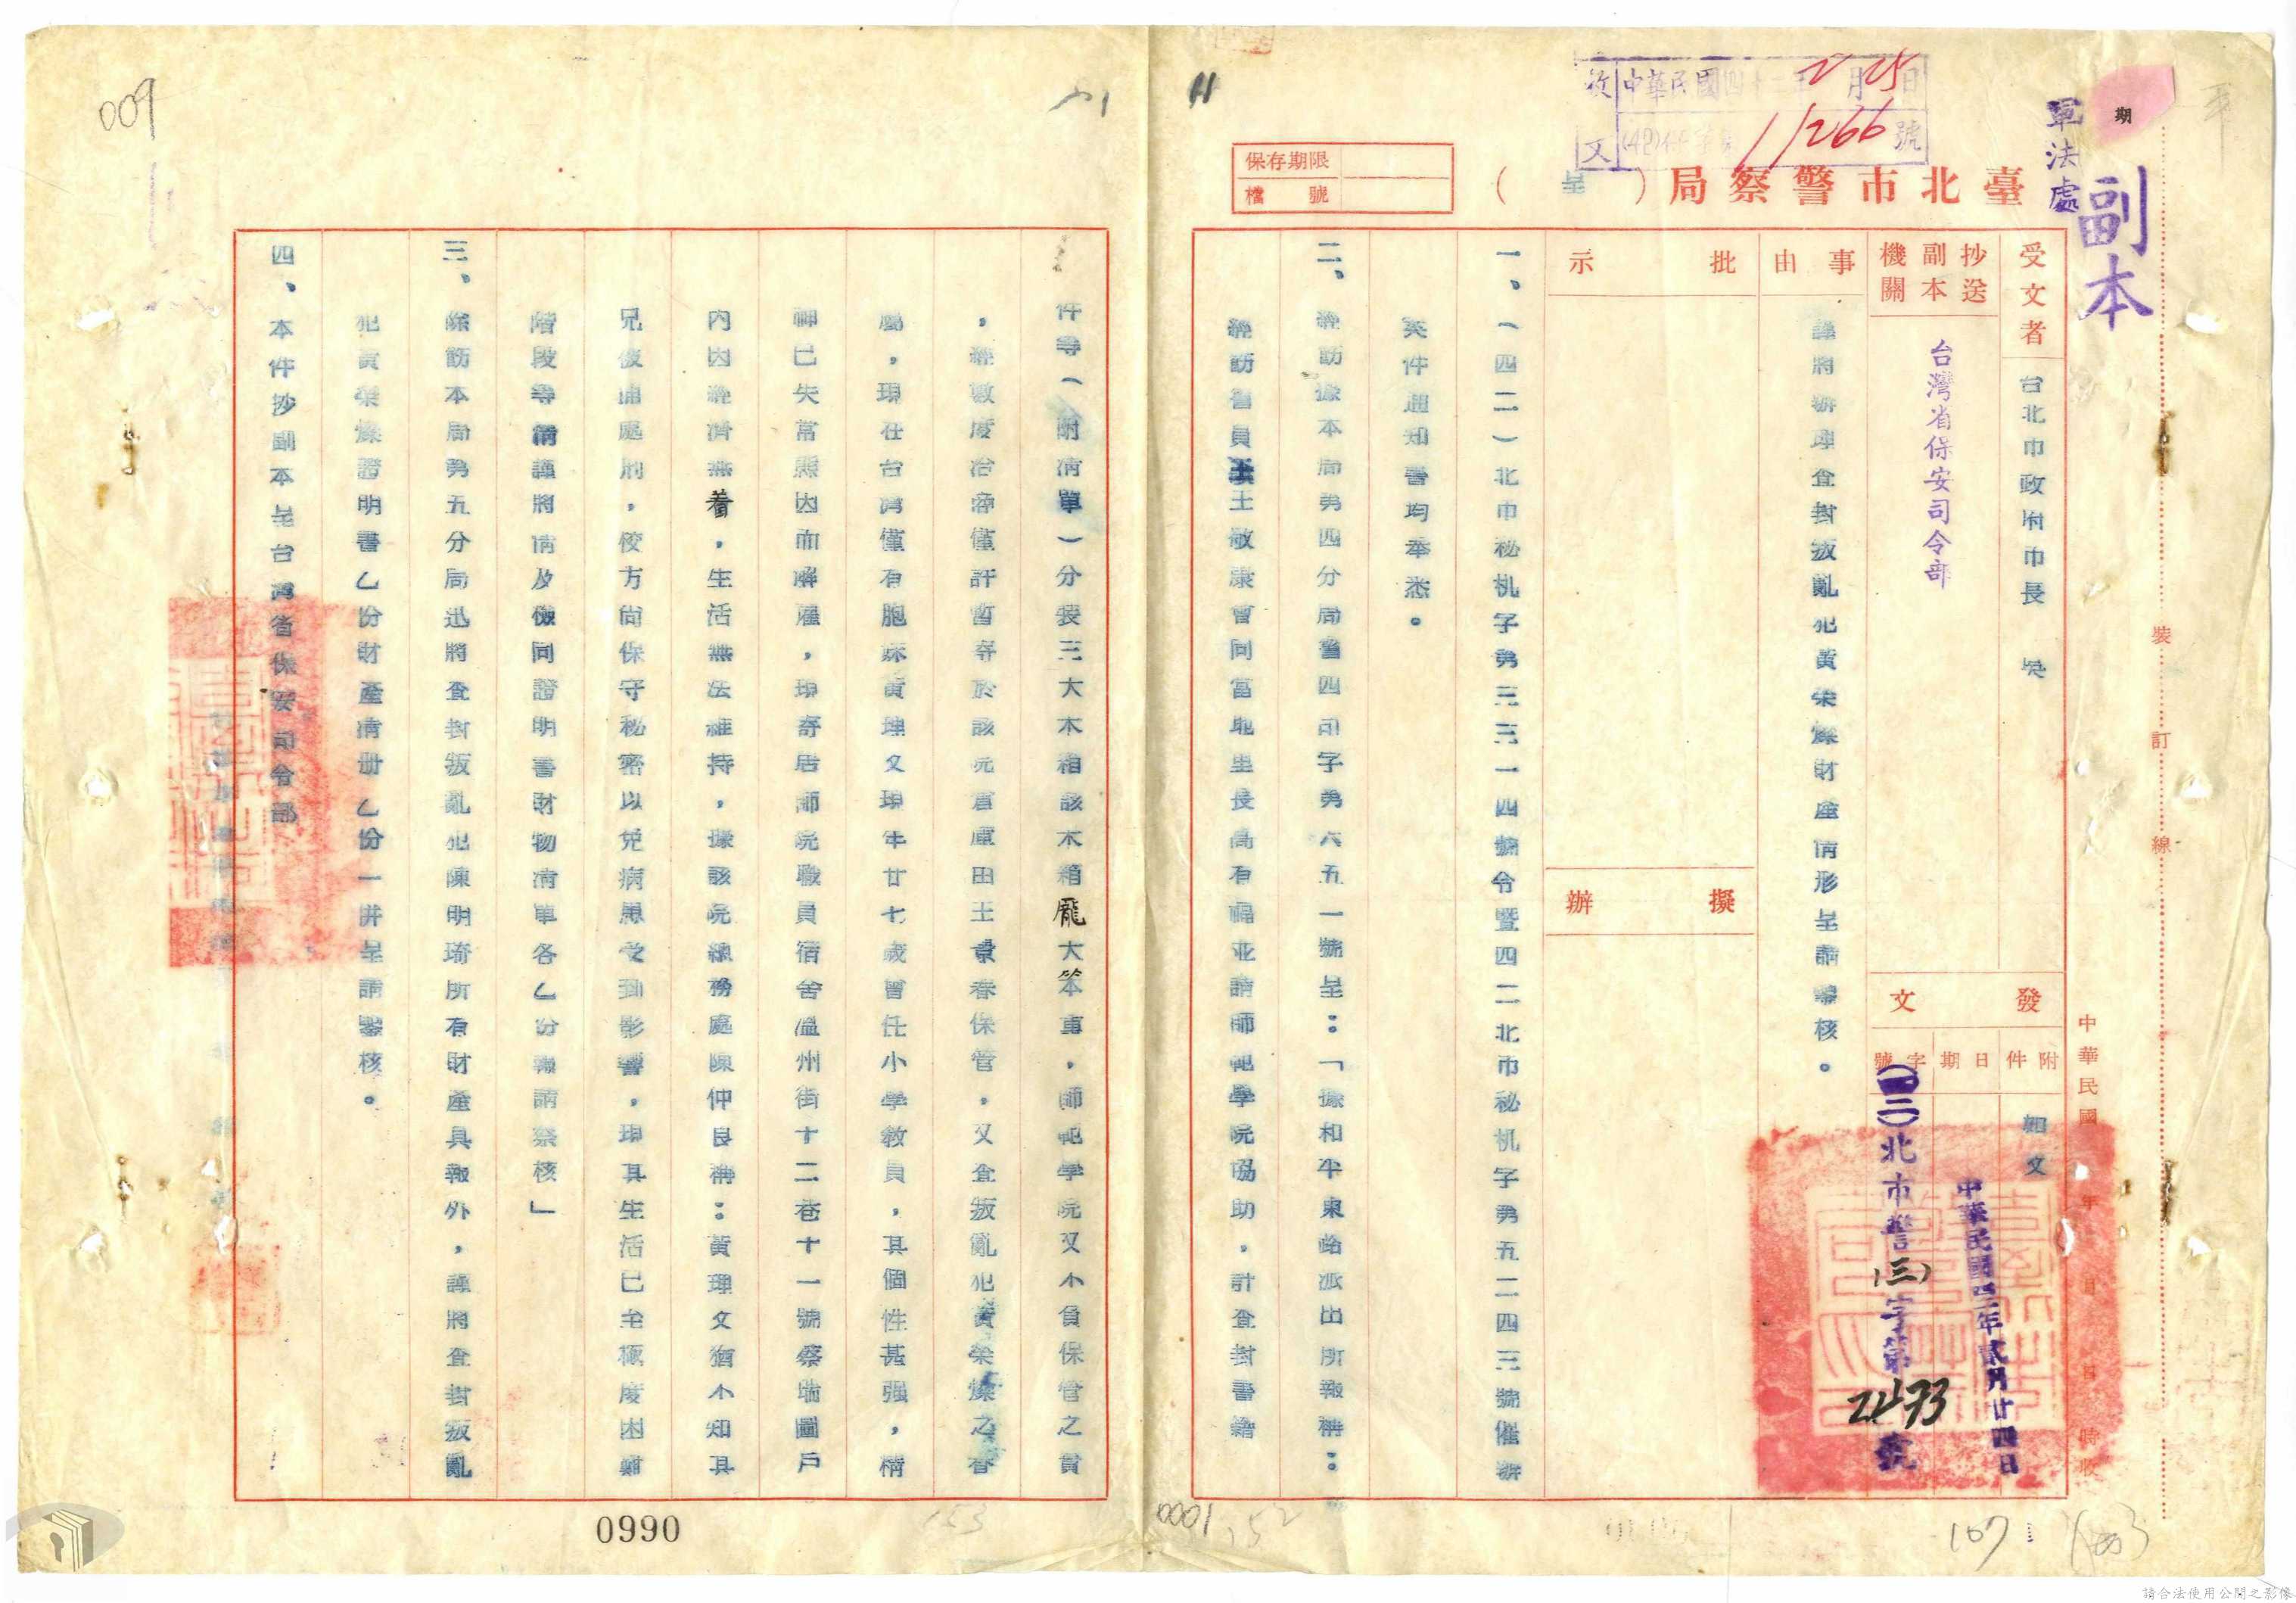 副本
軍法處
期
收文
中華民國四十二年2月25日
(42)
11266號
臺北市警察局（呈）
保存期限
檔號
受文者
台北市政府市長 吳
抄送副本機關
台灣省保安司令部
發文
附件
如文
日期
中華民國四二年貳月廿四日
字號
北市警(三)字第2473號
事由
謹將辦理查封叛亂犯黃榮燦財產情形呈請鑒核。
批示
擬辦
一、（四二）北市秘机字第三三一四號令暨四二北市秘机字第五二四三號催辦
案件通知書均奉悉。
二、經飭據本局第四分局警四司字第六五一號呈：「據和平東路派出所報稱：
經飭警員王敏康會同當地里長高有福並請師範學院協助，計查封書籍
件等（附清單）分裝三大木箱該木箱龐大笨重，師範學院又不負保管之責
，經數度洽商僅許暫寄於該院倉庫由王景春保管，又查叛亂犯黃榮燦之眷
屬，現在台灣僅有胞妹黃理文現年廿七歲曾任小學教員，其個性甚强，精
神已失常態因而解雇，現寄居師院職員宿舍溫州街十二巷十一號蔡瑞圖戶
內因經濟無着，生活無法維持，據該院總務處陳仲良稱：黃理文猶不知其
兄彼捕處刑，校方尚保守秘密以免病患受到影響，現其生活已至極度困難
階段等情謹將情及檢同證明書財物清單各乙份報請察核」
三、除飭本局第五分局迅將查封叛亂犯陳明琦所有財產具報外，謹將查封叛亂
犯黃榮燦證明書乙份財產清册乙份一併呈請鑒核。
四、本件抄副本呈台灣省保安司令部
裝
訂
線
中華民國 年 月 日 時收
009
0990
0001
152
153
107
請合法使用公開之影像